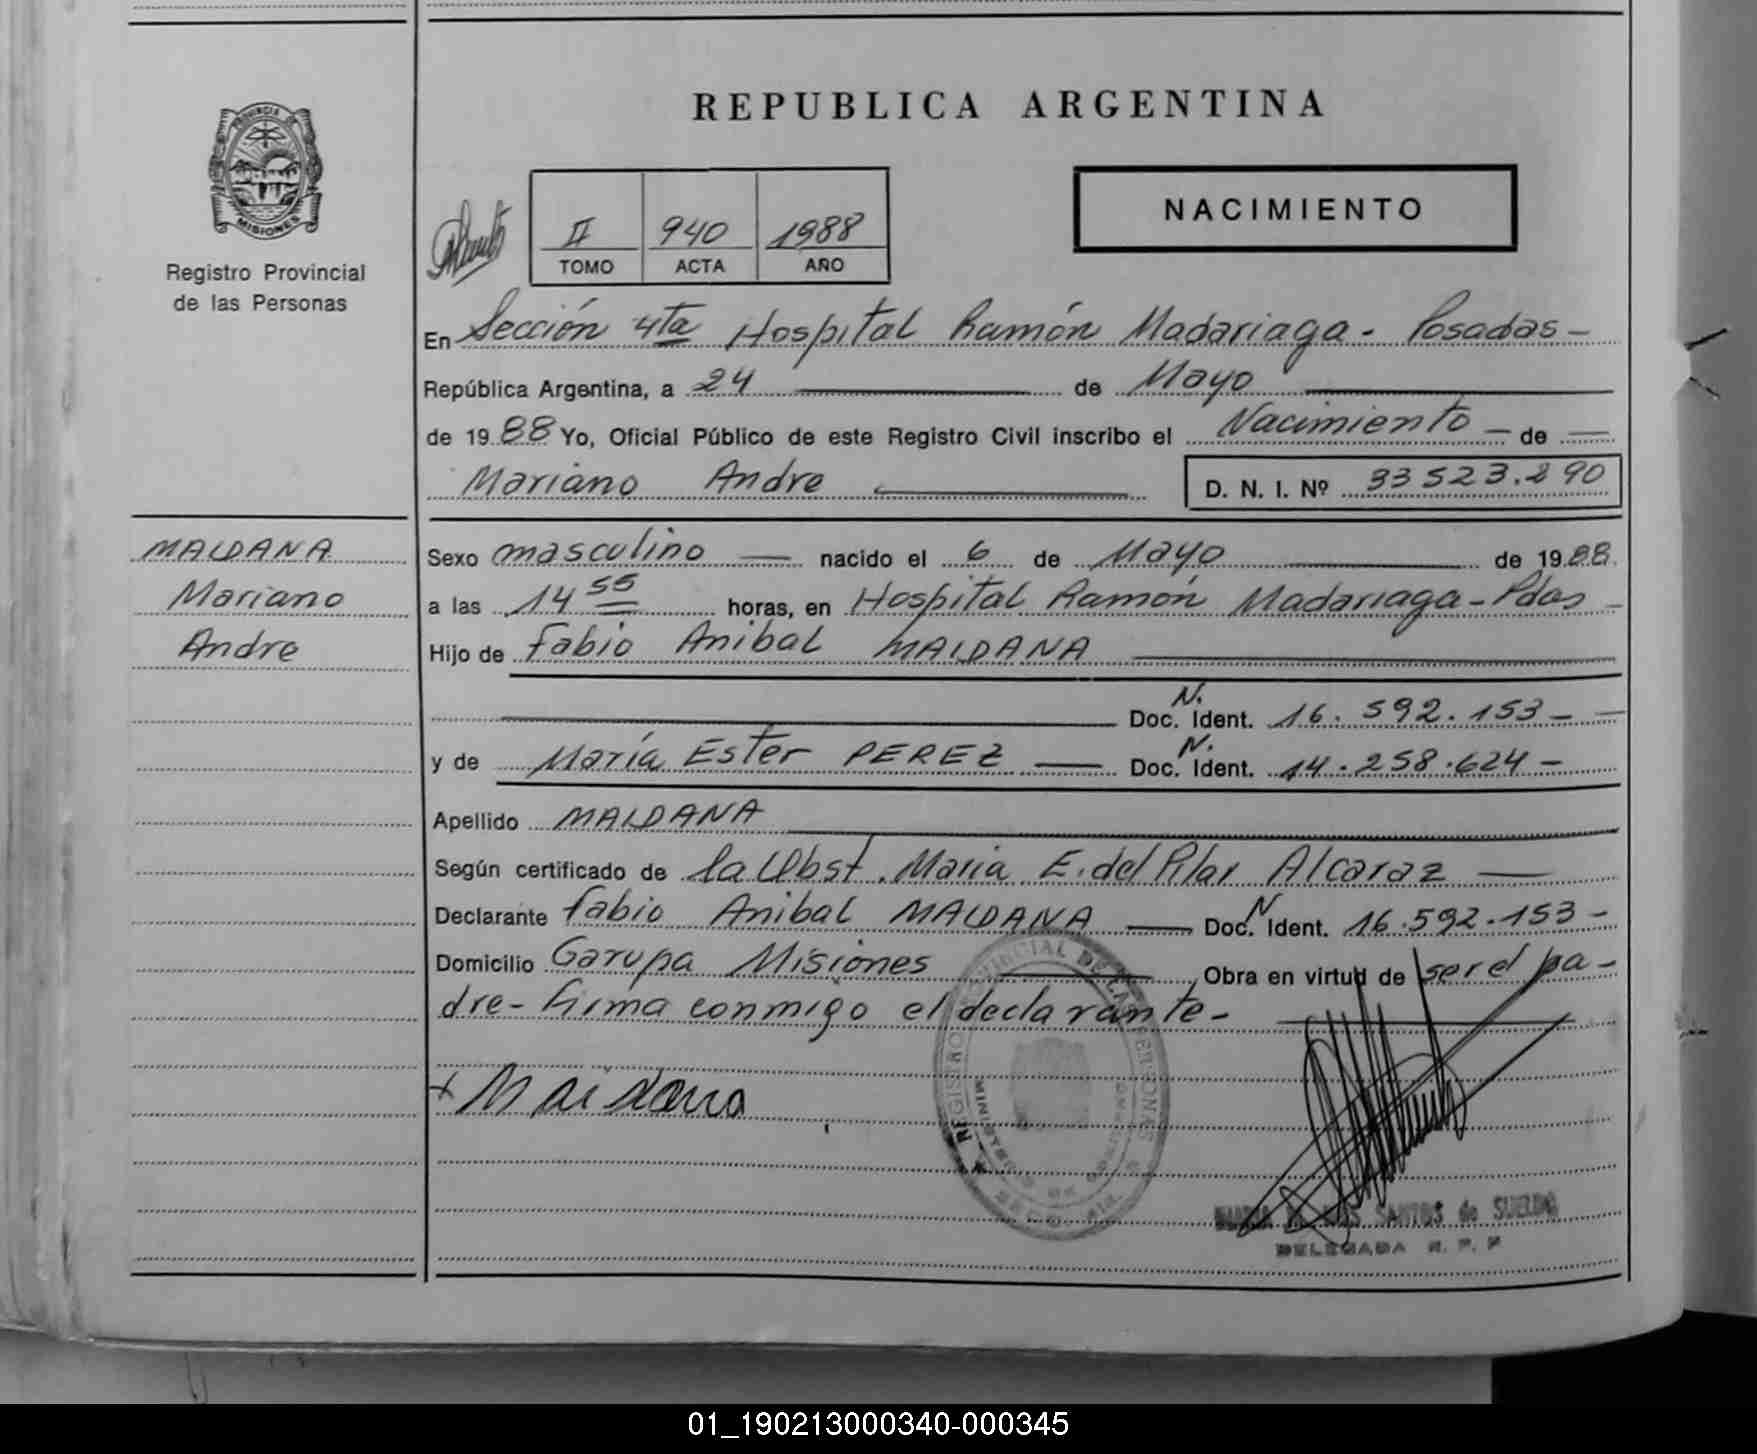 REPUBLICA ARGENTINA
PROVINCIA DE
MISIONES
Registro Provincial
de las Personas
II 940 1988
TOMO ACTA AÑO
NACIMIENTO
En Sección 4ta Hospital Ramón Madariaga - Posadas -
República Argentina, a 24 de Mayo
de 1988 Yo, Oficial Público de este Registro Civil inscribo el Nacimiento - de
Mariano Andre D. N. I. Nº 33523.290
MALDANA
Mariano
Andre
Sexo masculino nacido el 6 de Mayo de 1988.
a las 14 55 horas, en Hospital Ramón Madariaga - Pdas -
Hijo de Fabio Anibal MALDANA
N.
Doc. Ident. 16.592.153 -
N.
y de María Ester PEREZ Doc. Ident. 14.258.624 -
Apellido MALDANA
Según certificado de la Obst. Maria E. del Pilar Alcaraz
Declarante Fabio Anibal MALDANA Doc. N Ident. 16.592.153 -
Domicilio Garupa Misiones Obra en virtud de ser el pa-
dre - Firma conmigo el declarante -
+ Maidana
REGISTRO PROVINCIAL DE LAS PERSONAS
MINISTERIO DE GOBIERNO
SANTOS de SUELDO
DELEGADA R. P. P.
01_190213000340-000345